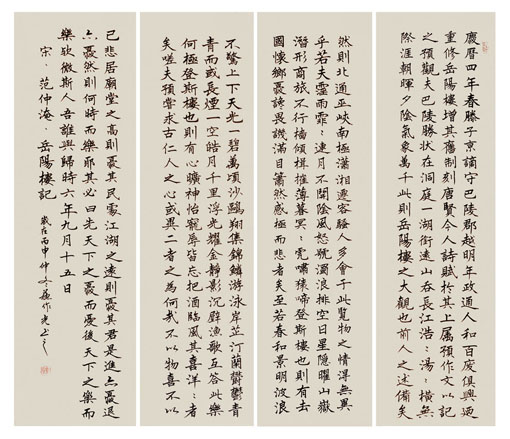 慶曆四年春滕子京謫守巴陵郡越明年政通人和百廢俱興迺
重修岳陽樓增其舊制刻唐賢今人詩賦於其上屬予作文以記
之予觀夫巴陵勝狀在洞庭一湖銜遠山吞長江浩〻湯〻橫無
際涯朝暉夕陰氣象萬千此則岳陽樓之大觀也前人之述備矣
然則北通巫峽南極瀟湘遷客騷人多會于此覽物之情得無異
乎若夫霪雨霏〻連月不開陰風怒號濁浪排空日星隱曜山嶽
潛形商旅不行檣傾楫摧薄暮冥〻虎嘯猿啼登斯樓也則有去
國懷鄉憂讒畏譏滿目蕭然感極而悲者矣至若春和景明波浪
不驚上下天光一碧萬頃沙鷗翔集錦鱗游泳岸芷汀蘭鬱鬱青
青而或長煙一空皓月千里浮光耀金靜影沉璧漁歌互答此樂
何極登斯樓也則有心曠神怡寵辱皆忘把酒臨風其喜洋〻者
矣嗟夫予嘗求古仁人之心或異二者之為何哉不以物喜不以
己悲居廟堂之高則憂其民處江湖之遠則憂其君是進亦憂退
亦憂然則何時而樂耶其必曰先天下之憂而憂後天下之樂而
樂歟微斯人吾誰與歸時六年九月十五日
宋·范仲淹·岳陽樓記
歲在丙申仲冬